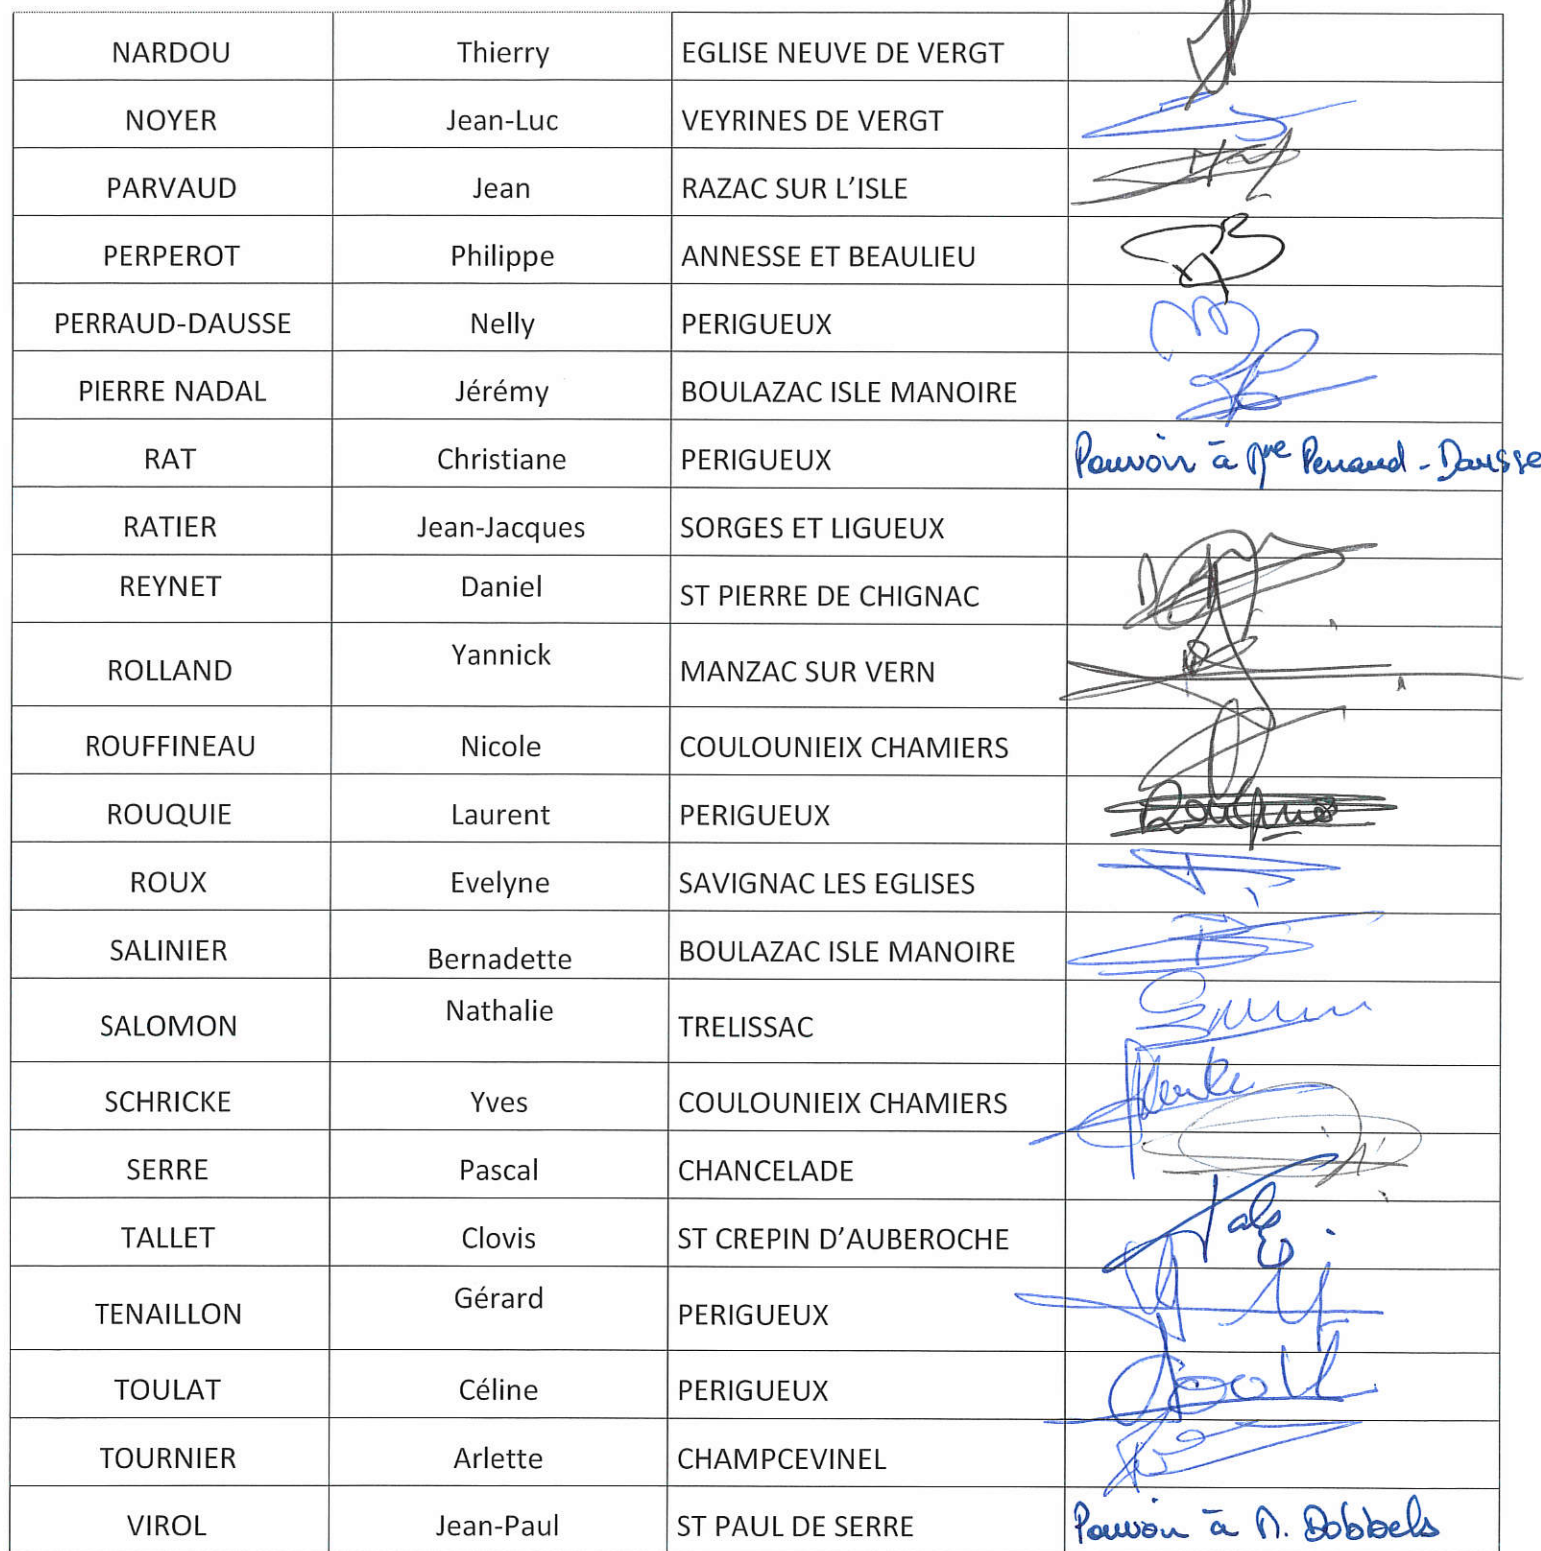 NARDOU Thierry EGLISE NEUVE DE VERGT
NOYER Jean-Luc VEYRINES DE VERGT
PARVAUD Jean RAZAC SUR L'ISLE
PERPEROT Philippe ANNESSE ET BEAULIEU
PERRAUD-DAUSSE Nelly PERIGUEUX
PIERRE NADAL Jérémy BOULAZAC ISLE MANOIRE
RAT Christiane PERIGUEUX Pouvoir à Mme Perraud-Dausse
RATIER Jean-Jacques SORGES ET LIGUEUX
REYNET Daniel ST PIERRE DE CHIGNAC
ROLLAND Yannick MANZAC SUR VERN
ROUFFINEAU Nicole COULOUNIEIX CHAMIERS
ROUQUIE Laurent PERIGUEUX
ROUX Evelyne SAVIGNAC LES EGLISES
SALINIER Bernadette BOULAZAC ISLE MANOIRE
SALOMON Nathalie TRELISSAC
SCHRICKE Yves COULOUNIEIX CHAMIERS
SERRE Pascal CHANCELADE
TALLET Clovis ST CREPIN D'AUBEROCHE
TENAILLON Gérard PERIGUEUX
TOULAT Céline PERIGUEUX
TOURNIER Arlette CHAMPCEVINEL
VIROL Jean-Paul ST PAUL DE SERRE Pouvoir à M. Dobbels